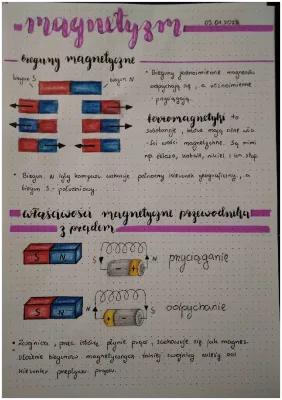 magnetyzm
bieguny magnetyczne
biegun S
biegun N
• Bieguny jednoimienne magnesów
odpychają się, a różnoimienne
przyciągają.
ferromagnetyki to
substancje, które mają silne wła-
ści wości magnetyczne. Są nimi
np. żelazo, kobalt, nikiel i ich stop
• Biegun N igły kompasu wskazuje północny kierunek geograficzny, a
biegun S - południowy.
właściwości magnetyczne przewodnika
z prądem
S N
S
N
przyciąganie
S N
N
S
odpychanie
• Zwojnica, przez którą płynie prąd, zachowuje się jak magnes.
Ułożenie biegunów magnetycznych takiej zwojnicy zależy od
kierunku przepływu prądu.